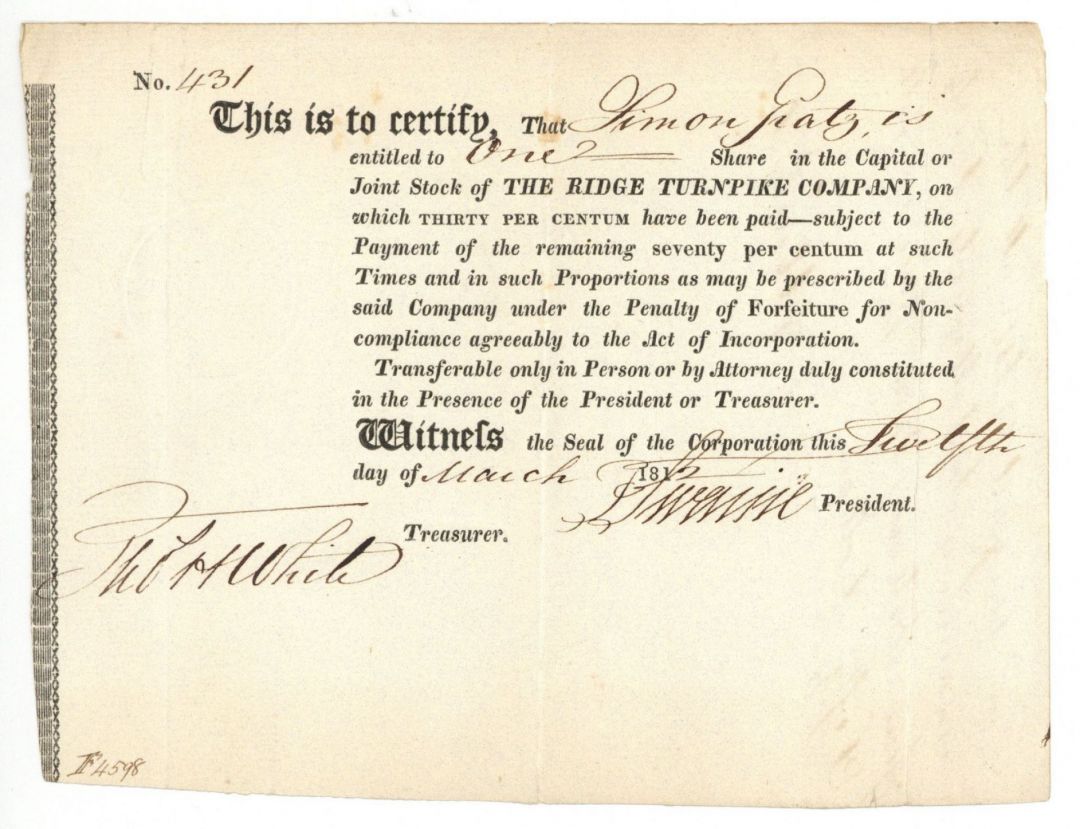 No. 431
This is to certify, That Simon Gratz, is
entitled to One Share in the Capital or
Joint Stock of THE RIDGE TURNPIKE COMPANY, on
which THIRTY PER CENTUM have been paid—subject to the
Payment of the remaining seventy per centum at such
Times and in such Proportions as may be prescribed by the
said Company under the Penalty of Forfeiture for Non-
compliance agreeably to the Act of Incorporation.
Transferable only in Person or by Attorney duly constituted
in the Presence of the President or Treasurer.
Witneſs the Seal of the Corporation this Twelfth
day of March 1812
President.
Treasurer.
Tho H White
4598